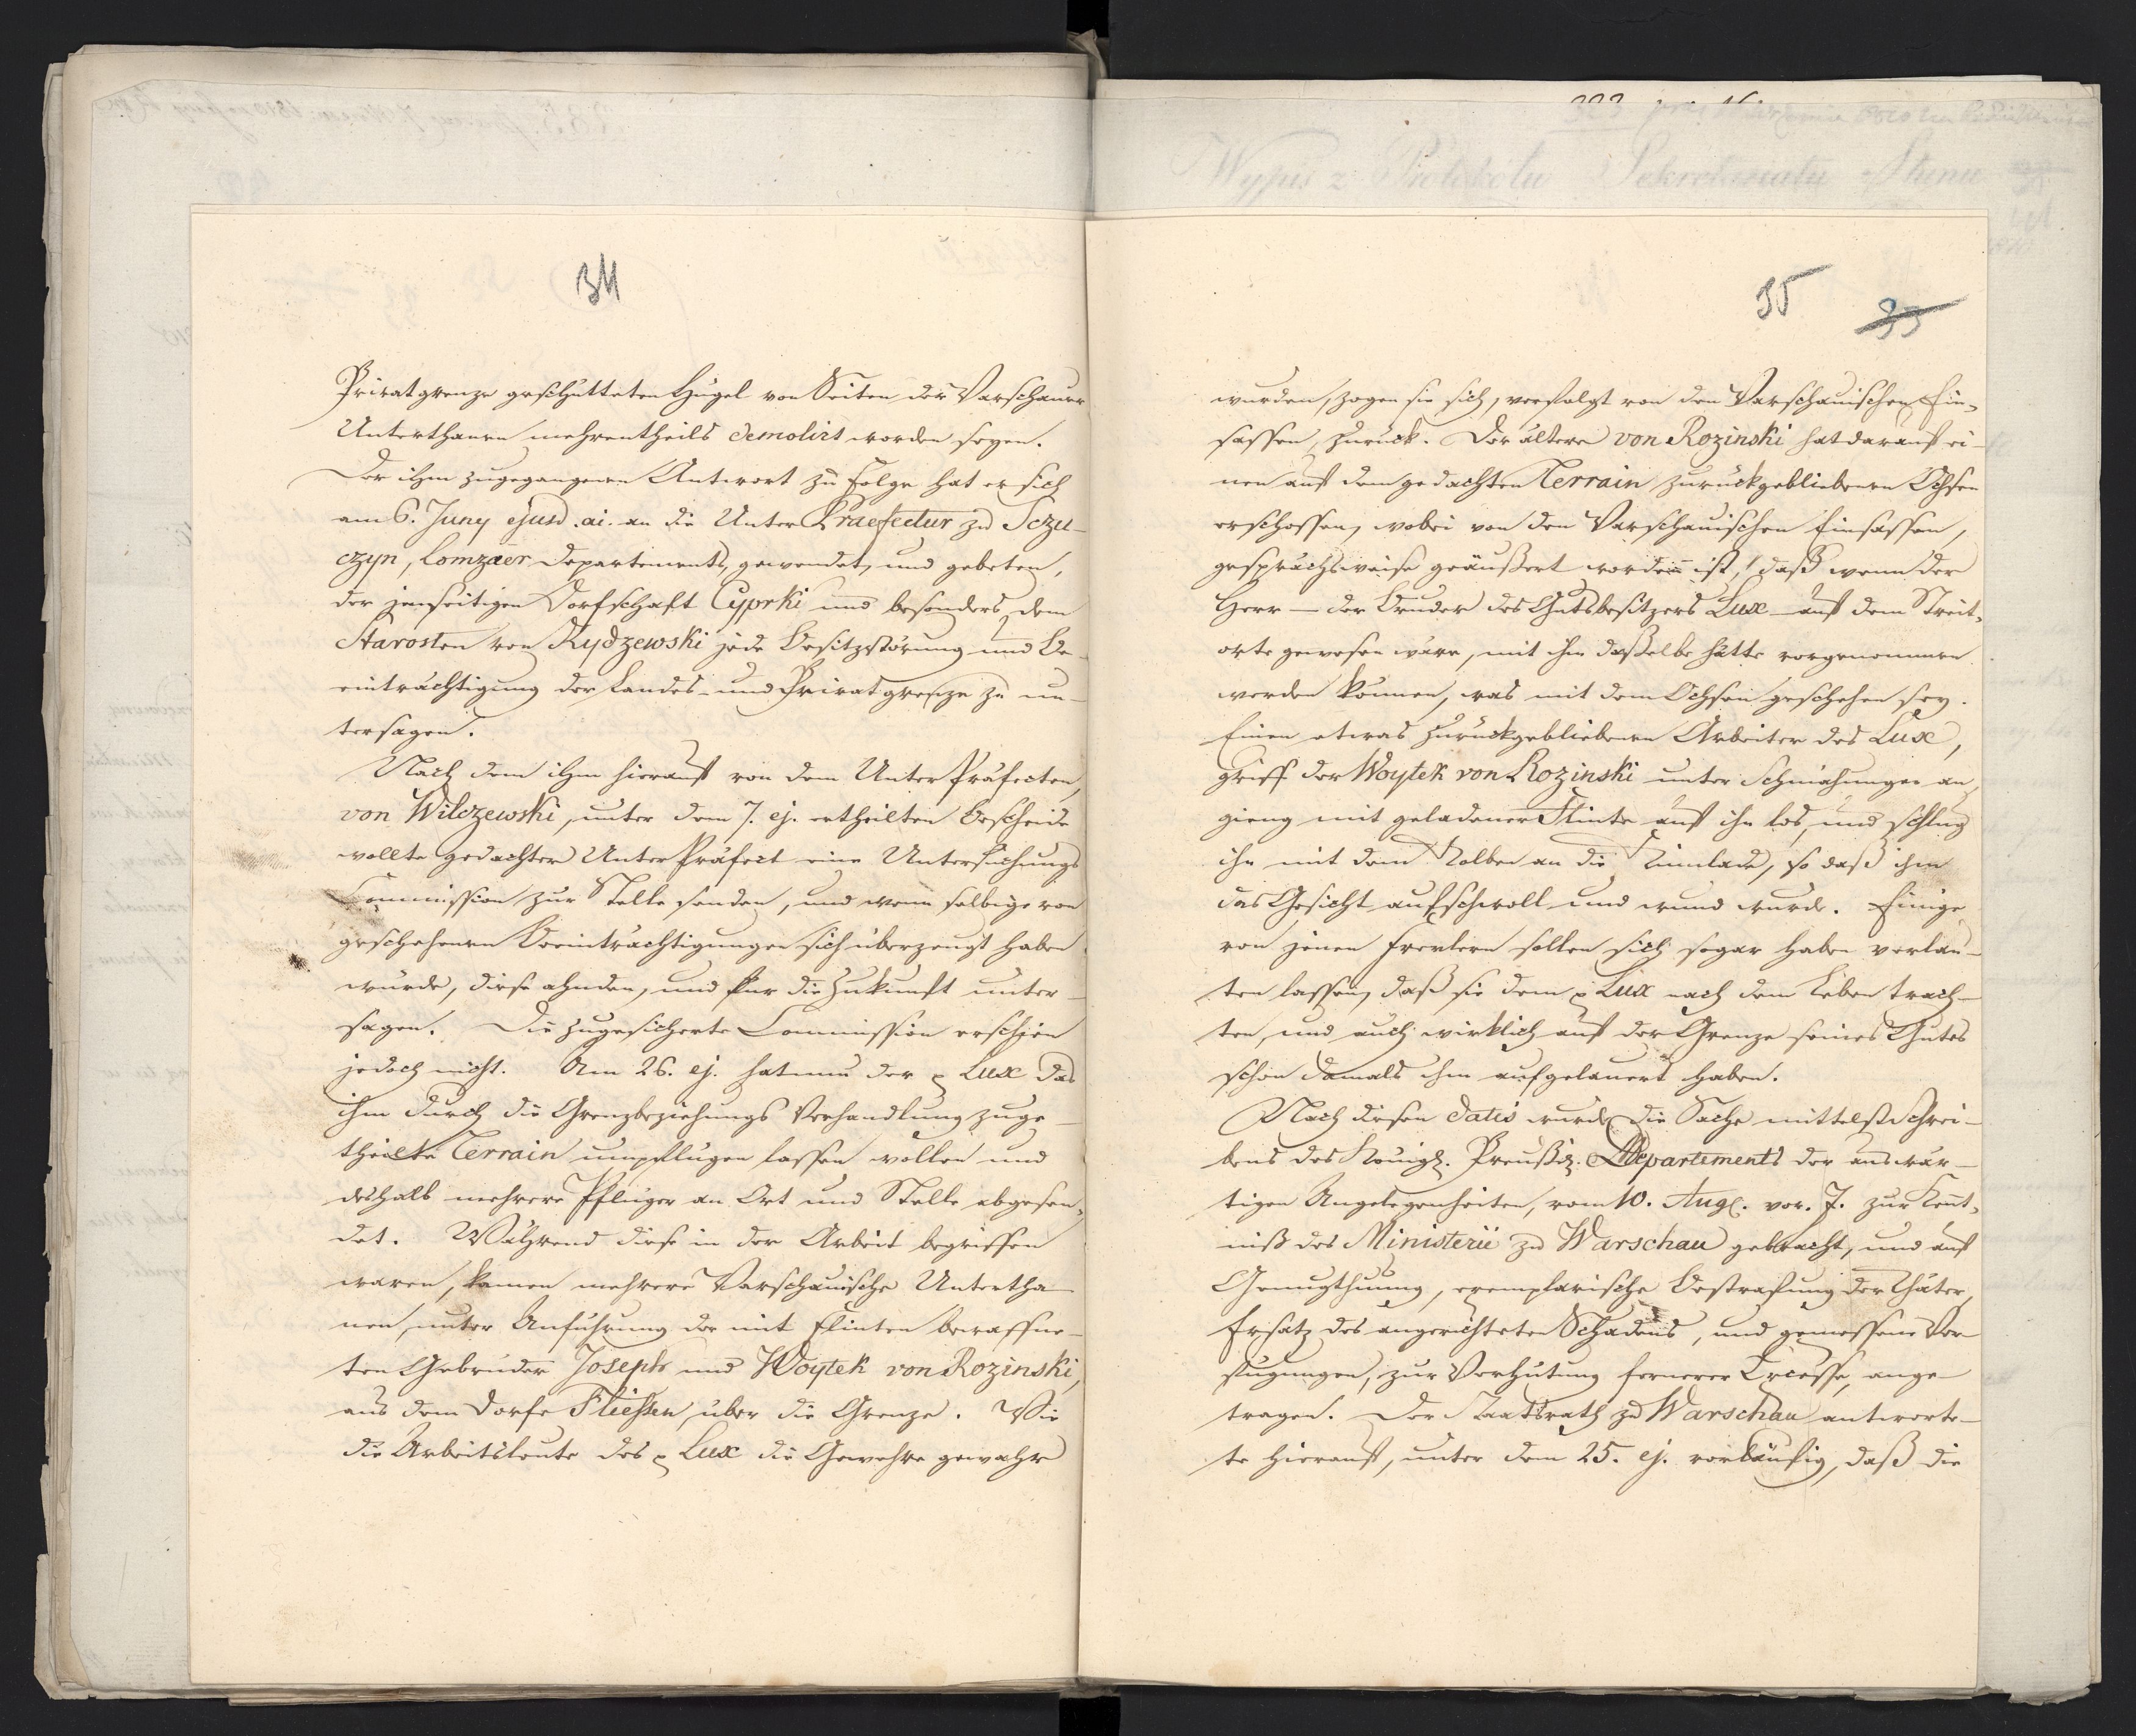 34
Privatgrenze geschütteten Hügel von Seiten der Warschauer
Unterthanen mehrentheils demolirt worden seyen.
Der ihm zugegangenen Antwort zu Folge hat er sich
am 6. Juny ejusd. ai. an die Unter Praefectur zu Sczu-
czyn, Lomzaer Departements, gewendet, und gebeten,
der jenseitigen Dorfschaft Cyprki und besonders dem
Starosten von Rydzewski jede Besitzstörung und Be-
einträchtigung der Landes- und Privatgrenze zu un-
tersagen.
Nach dem ihm hierauf von dem Unter Präfecten
von Wilczewski, unter dem 7. ej. ertheilten Bescheide
wollte gedachter Unter Präfect eine Untersuchungs
Commission zur Stelle senden, und wenn selbige von
geschehenen Beeinträchtigungen sich überzeugt haben
würde, diese ahnden, und für die Zukunft unter-
sagen. Die zugesicherte Commission erschien
jedoch nicht. Am 26. ej. hat nun der p Lux das
ihm durch die Grenzbeziehungs Verhandlung zuge-
theilte Terrain umpflügen lassen wollen und
deshalb mehrere Pflüger an Ort und Stelle abgesen-
det. Während diese in der Arbeit begriffen
waren, kamen mehrere Warschauische Untertha-
nen, unter Anführung der mit Flinten bewaffne-
ten Gebrüder Joseph und Woytek von Rozinski,
aus dem Dorfe Fliessen, über die Grenze. Wie
die Arbeitsleute des p Lux die Gewehre gewahr
35
33
wurden, zogen sie sich, verfolgt von den Warschauischen Ein-
sassen, zurück. Der ältere von Rozinski hat darauf ei-
nen auf dem gedachten Terrain zurückgebliebenen Ochsen
erschossen, wobei von den Warschauischen Einsassen,
gesprächsweise geäußert worden ist, daß wenn der
Herr – der Bruder des Gutsbesitzers Lux – auf dem Streit-
orte gewesen wäre, mit ihm dasselbe hätte vorgenommen
werden können, was mit dem Ochsen geschehen sey.
Einen etwas zurückgebliebenen Arbeiter des Lux,
griff der Woytek von Rozinski unter Schmähungen an,
gieng mit geladener Flinte auf ihn los, und schlug
ihn mit dem Kolben an die Kinnlade, so daß ihm
das Gesicht aufschwoll und wund wurde. Einige
von jenen Frevlern sollen sich sogar haben verlau-
ten lassen, daß sie dem p Lux nach dem Leben trach-
ten, und auch wirklich auf der Grenze seines Gutes
schon damals ihm aufgelauert haben.
Nach diesen datis wurde die Sache mittelst Schrei-
bens des Königl. Preußis. Departements der auswär-
tigen Angelegenheiten, vom 10. Aug. vor. J. zur Kennt-
niß des Ministerii zu Warschau gebracht, und auf
Genugthuung, exemplarische Bestrafung der Thäter,
Ersatz des angerichteten Schadens, und gemessene Ver-
fügungen, zur Verhütung fernerer Excesse, ange-
tragen. Der Staatsrath zu Warschau antworte-
te hierauf, unter dem 25. ej. vorläufig, daß die